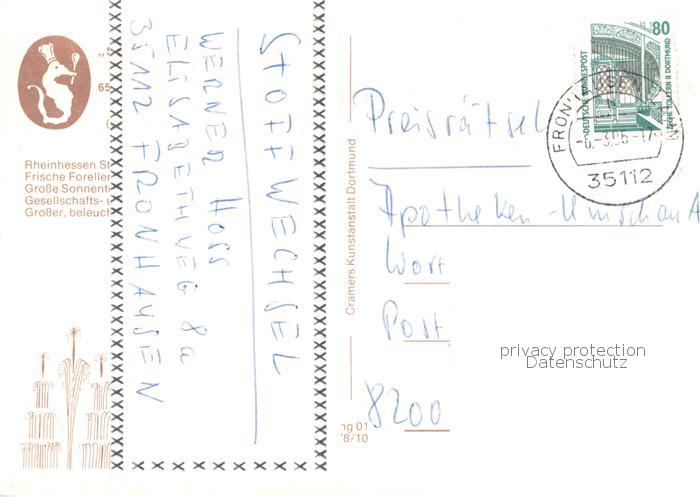 65
Rheinhessen St
Frische Foreller
Große Sonnent
Gesellschafts-
Großer, beleuch
STOFFWECHSEL
WERNER
ELISABETHWEG 8a
35112 FRONHAUSEN
Cramers Kunstanstalt Dortmund
ng 01
78/10
80
DEUTSCHE BUNDESPOST
ZECHE ZOLLERN II DORTMUND
35112
Preisrätsel
Apotheken-Umschau A
Wort
Post
8200
privacy protection
Datenschutz